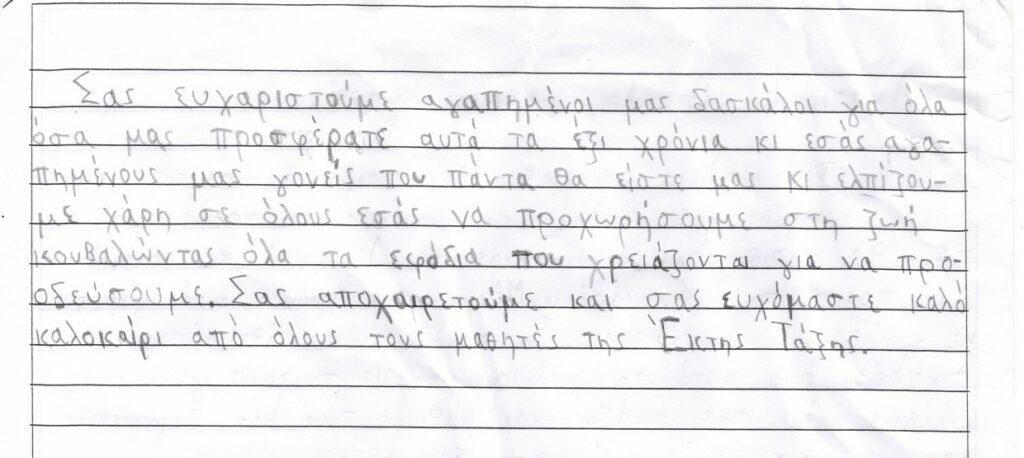 Σας ευχαριστούμε αγαπημένοι μας δασκάλοι για όλα
όσα μας προσφέρατε αυτά τα έξι χρόνια κι εσάς αγα-
πημένους μας γονείς που πάντα θα είστε μας κι ελπίζου-
με χάρη σε όλους εσάς να προχωρήσουμε στη ζωή
κουβαλώντας όλα τα εφόδια που χρειάζονται για να προ-
οδεύσουμε. Σας αποχαιρετούμε και σας ευχόμαστε καλό
καλοκαίρι από όλους τους μαθητές της Έκτης Τάξης.